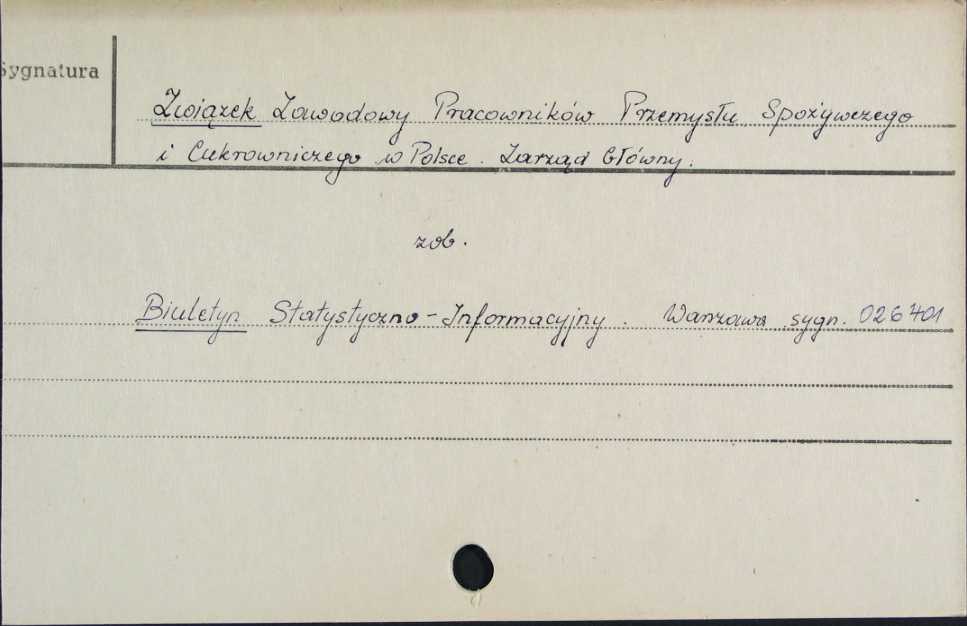 Sygnatura
Związek Zawodowy Pracowników Przemysłu Spożywczego
i Cukrowniczego w Polsce. Zarząd Główny.
zob.
Biuletyn Statystyczno-Informacyjny. Warszawa sygn. 026401